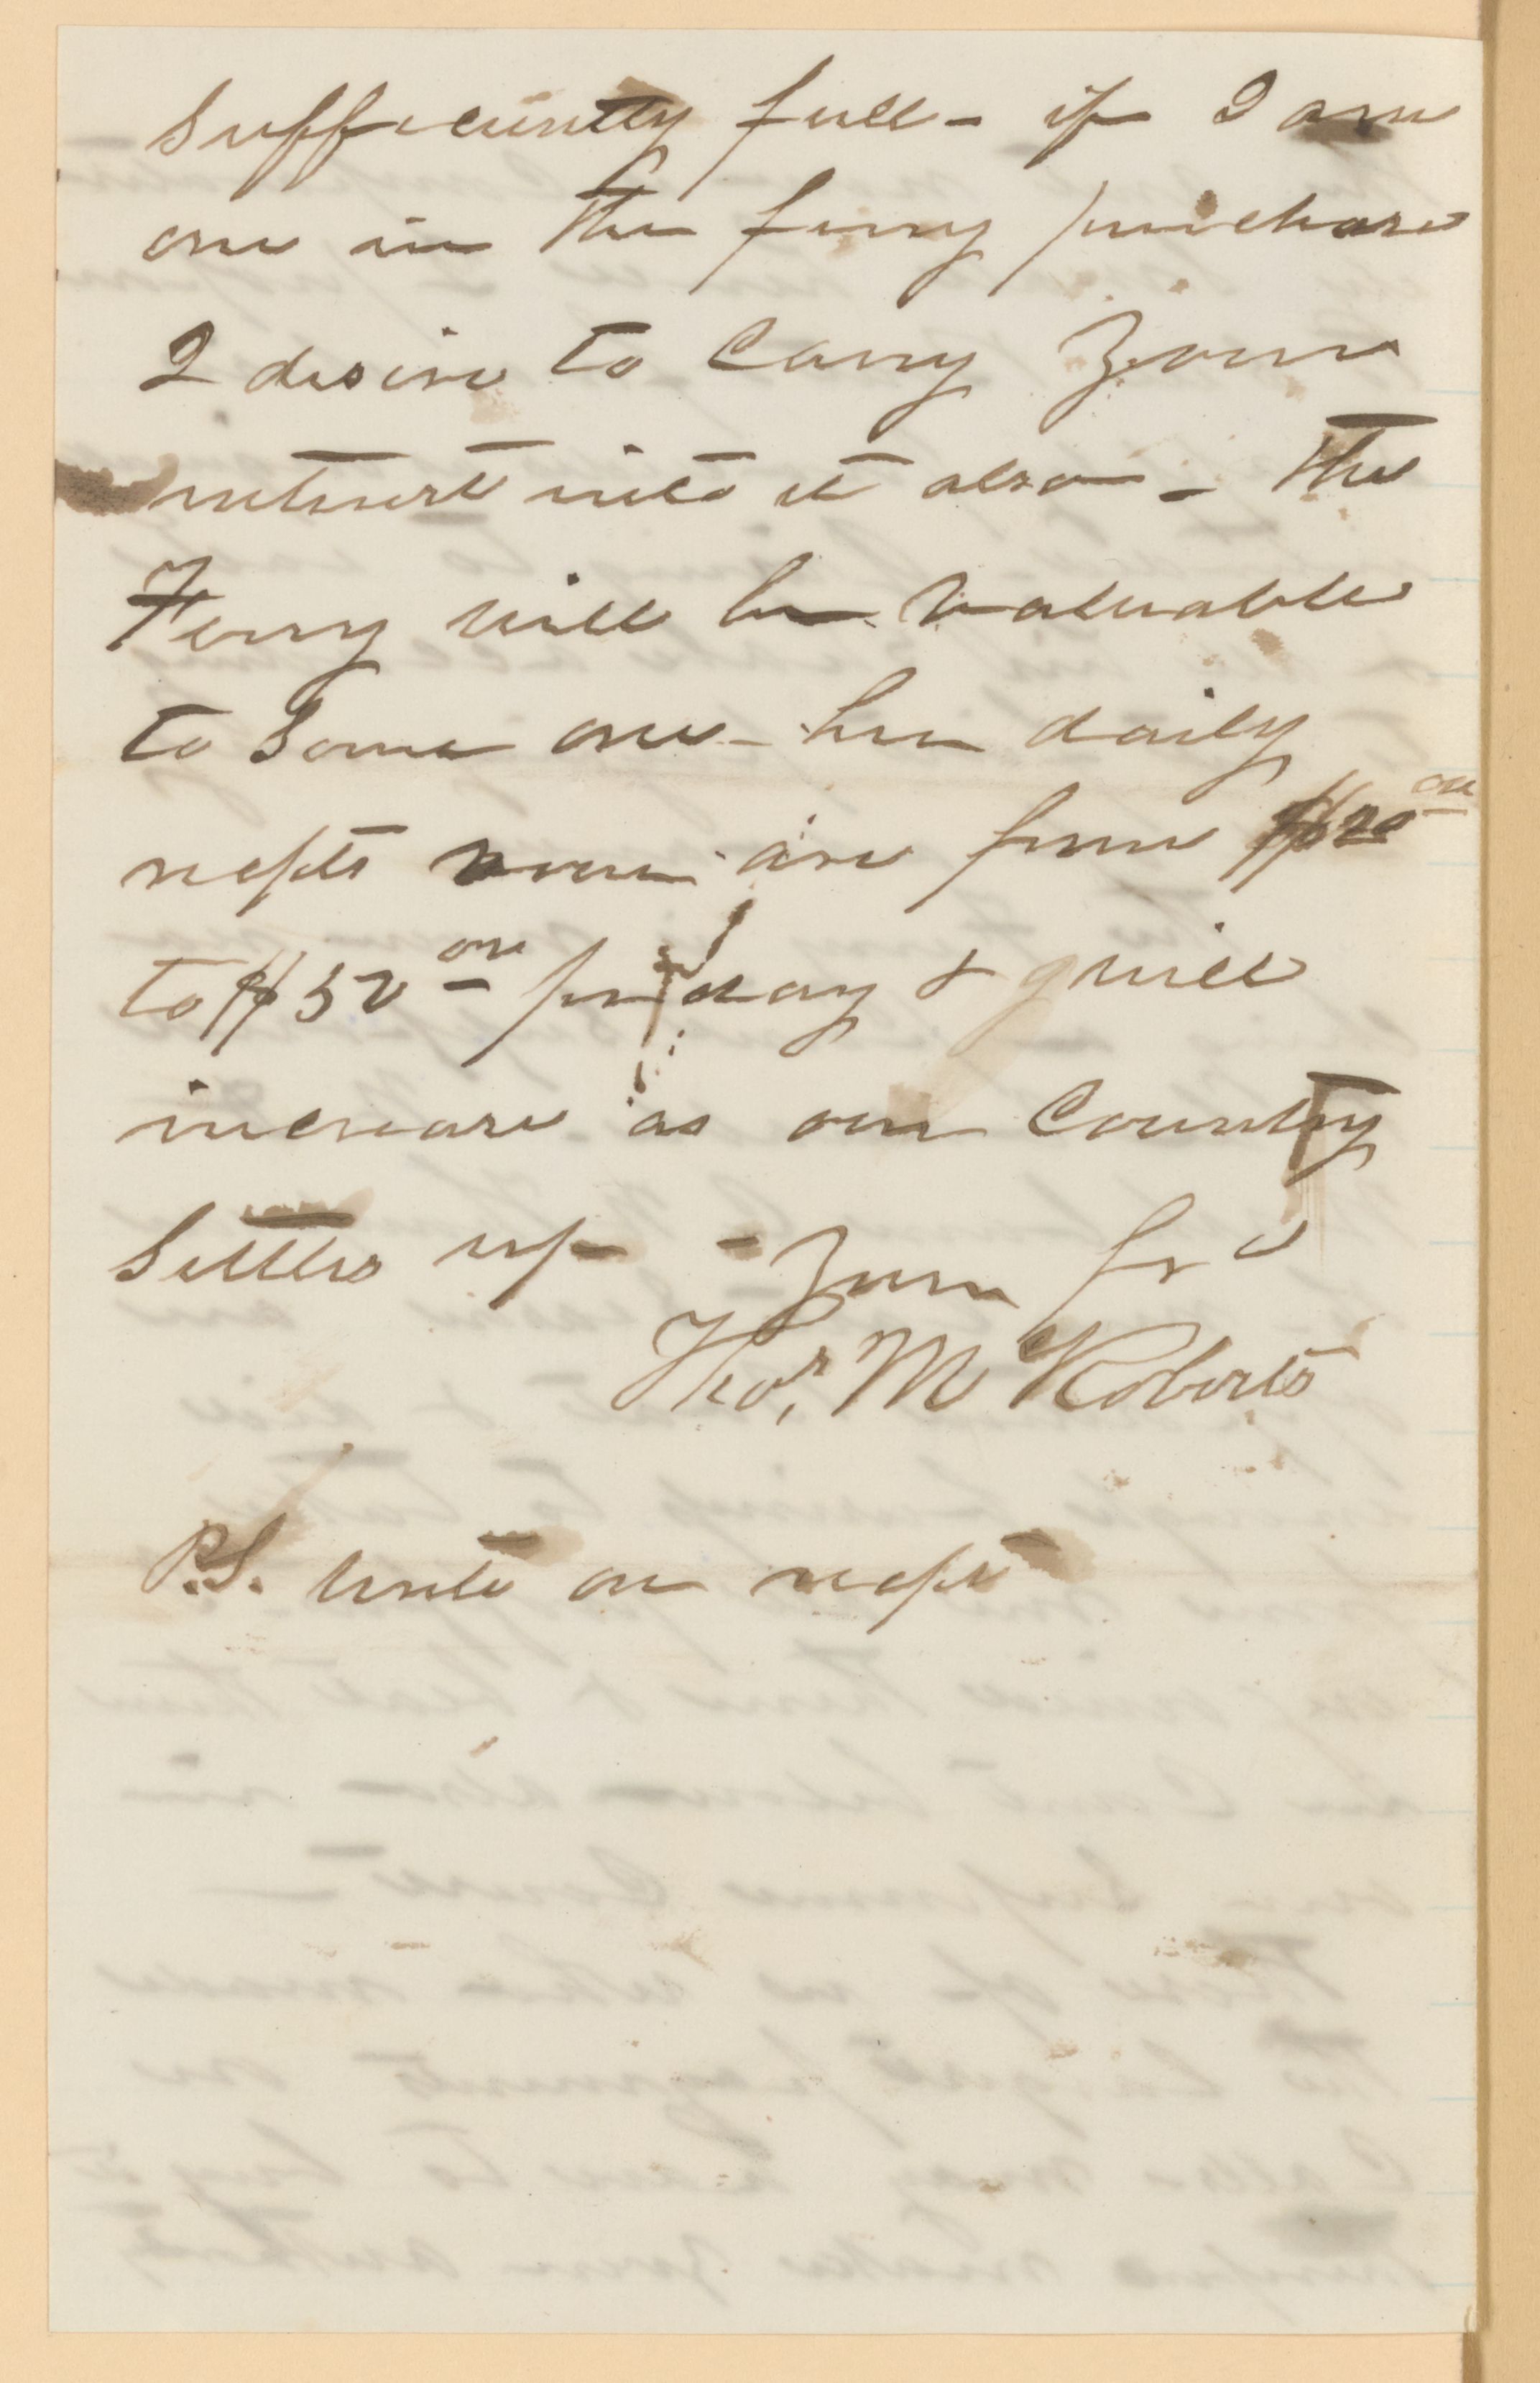 Sufficiently full - if I am
one in the ferry purchase
I desire to Carry Your
interest into it also - The
Ferry will be valuable
to Some one - her daily
recpts now are from $20 00
to $50 00 per day & will
increase as our Country
Settles up - Your frd
Thos. M Roberts
P.S. write on recpt